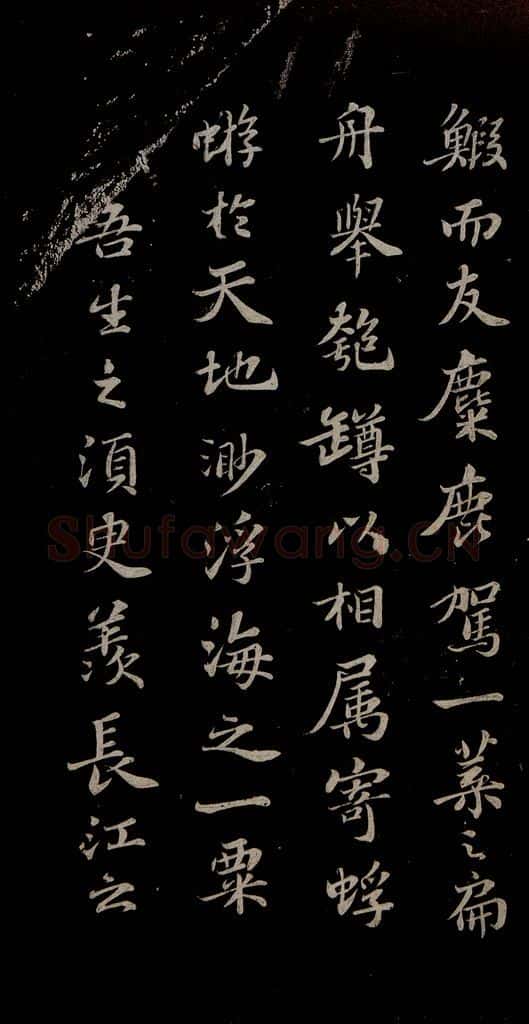 鰕而友麋鹿駕一葉之扁
舟舉匏罇以相属寄蜉
蝣於天地渺浮海之一粟
吾生之須臾羨長江之
Shufawang.CN